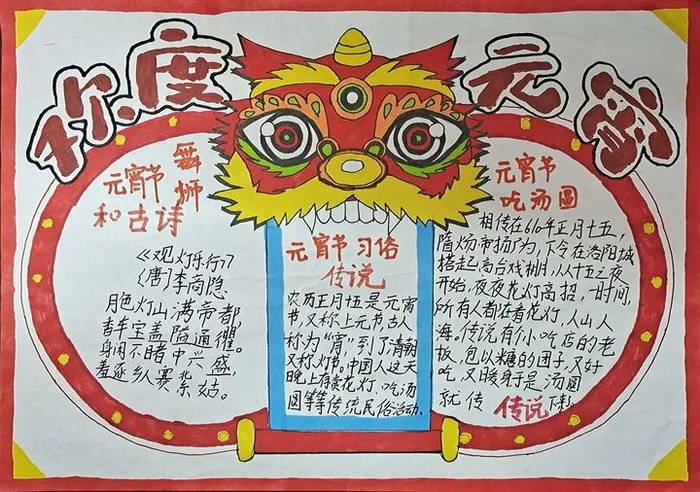 欢度 元宵
元宵节
和古诗
舞狮
《观灯乐行》
(唐)李商隐
月色灯山满帝都,
香车宝盖隘通衢。
身闲不睹中兴盛,
羞逐乡人赛紫姑。
元宵节习俗
传说
农历正月五是元宵
节,又称上元节,古人
称为"宵",到了清朝
又称灯节。中国人这天
晚上有 花灯、吃汤
圆等等传统民俗活动。
元宵节
吃汤圆
相传在610年正月十五,
隋炀帝扬广为,下令在洛阳城
搭起高台戏棚,从十五之夜
开始,夜夜花灯高招,一时间,
所有人都在看花灯,人山人
海。传说有个小吃店的老
板,包以糖的团子,又好
吃,又暖身于是汤圆
就传 传说 下来